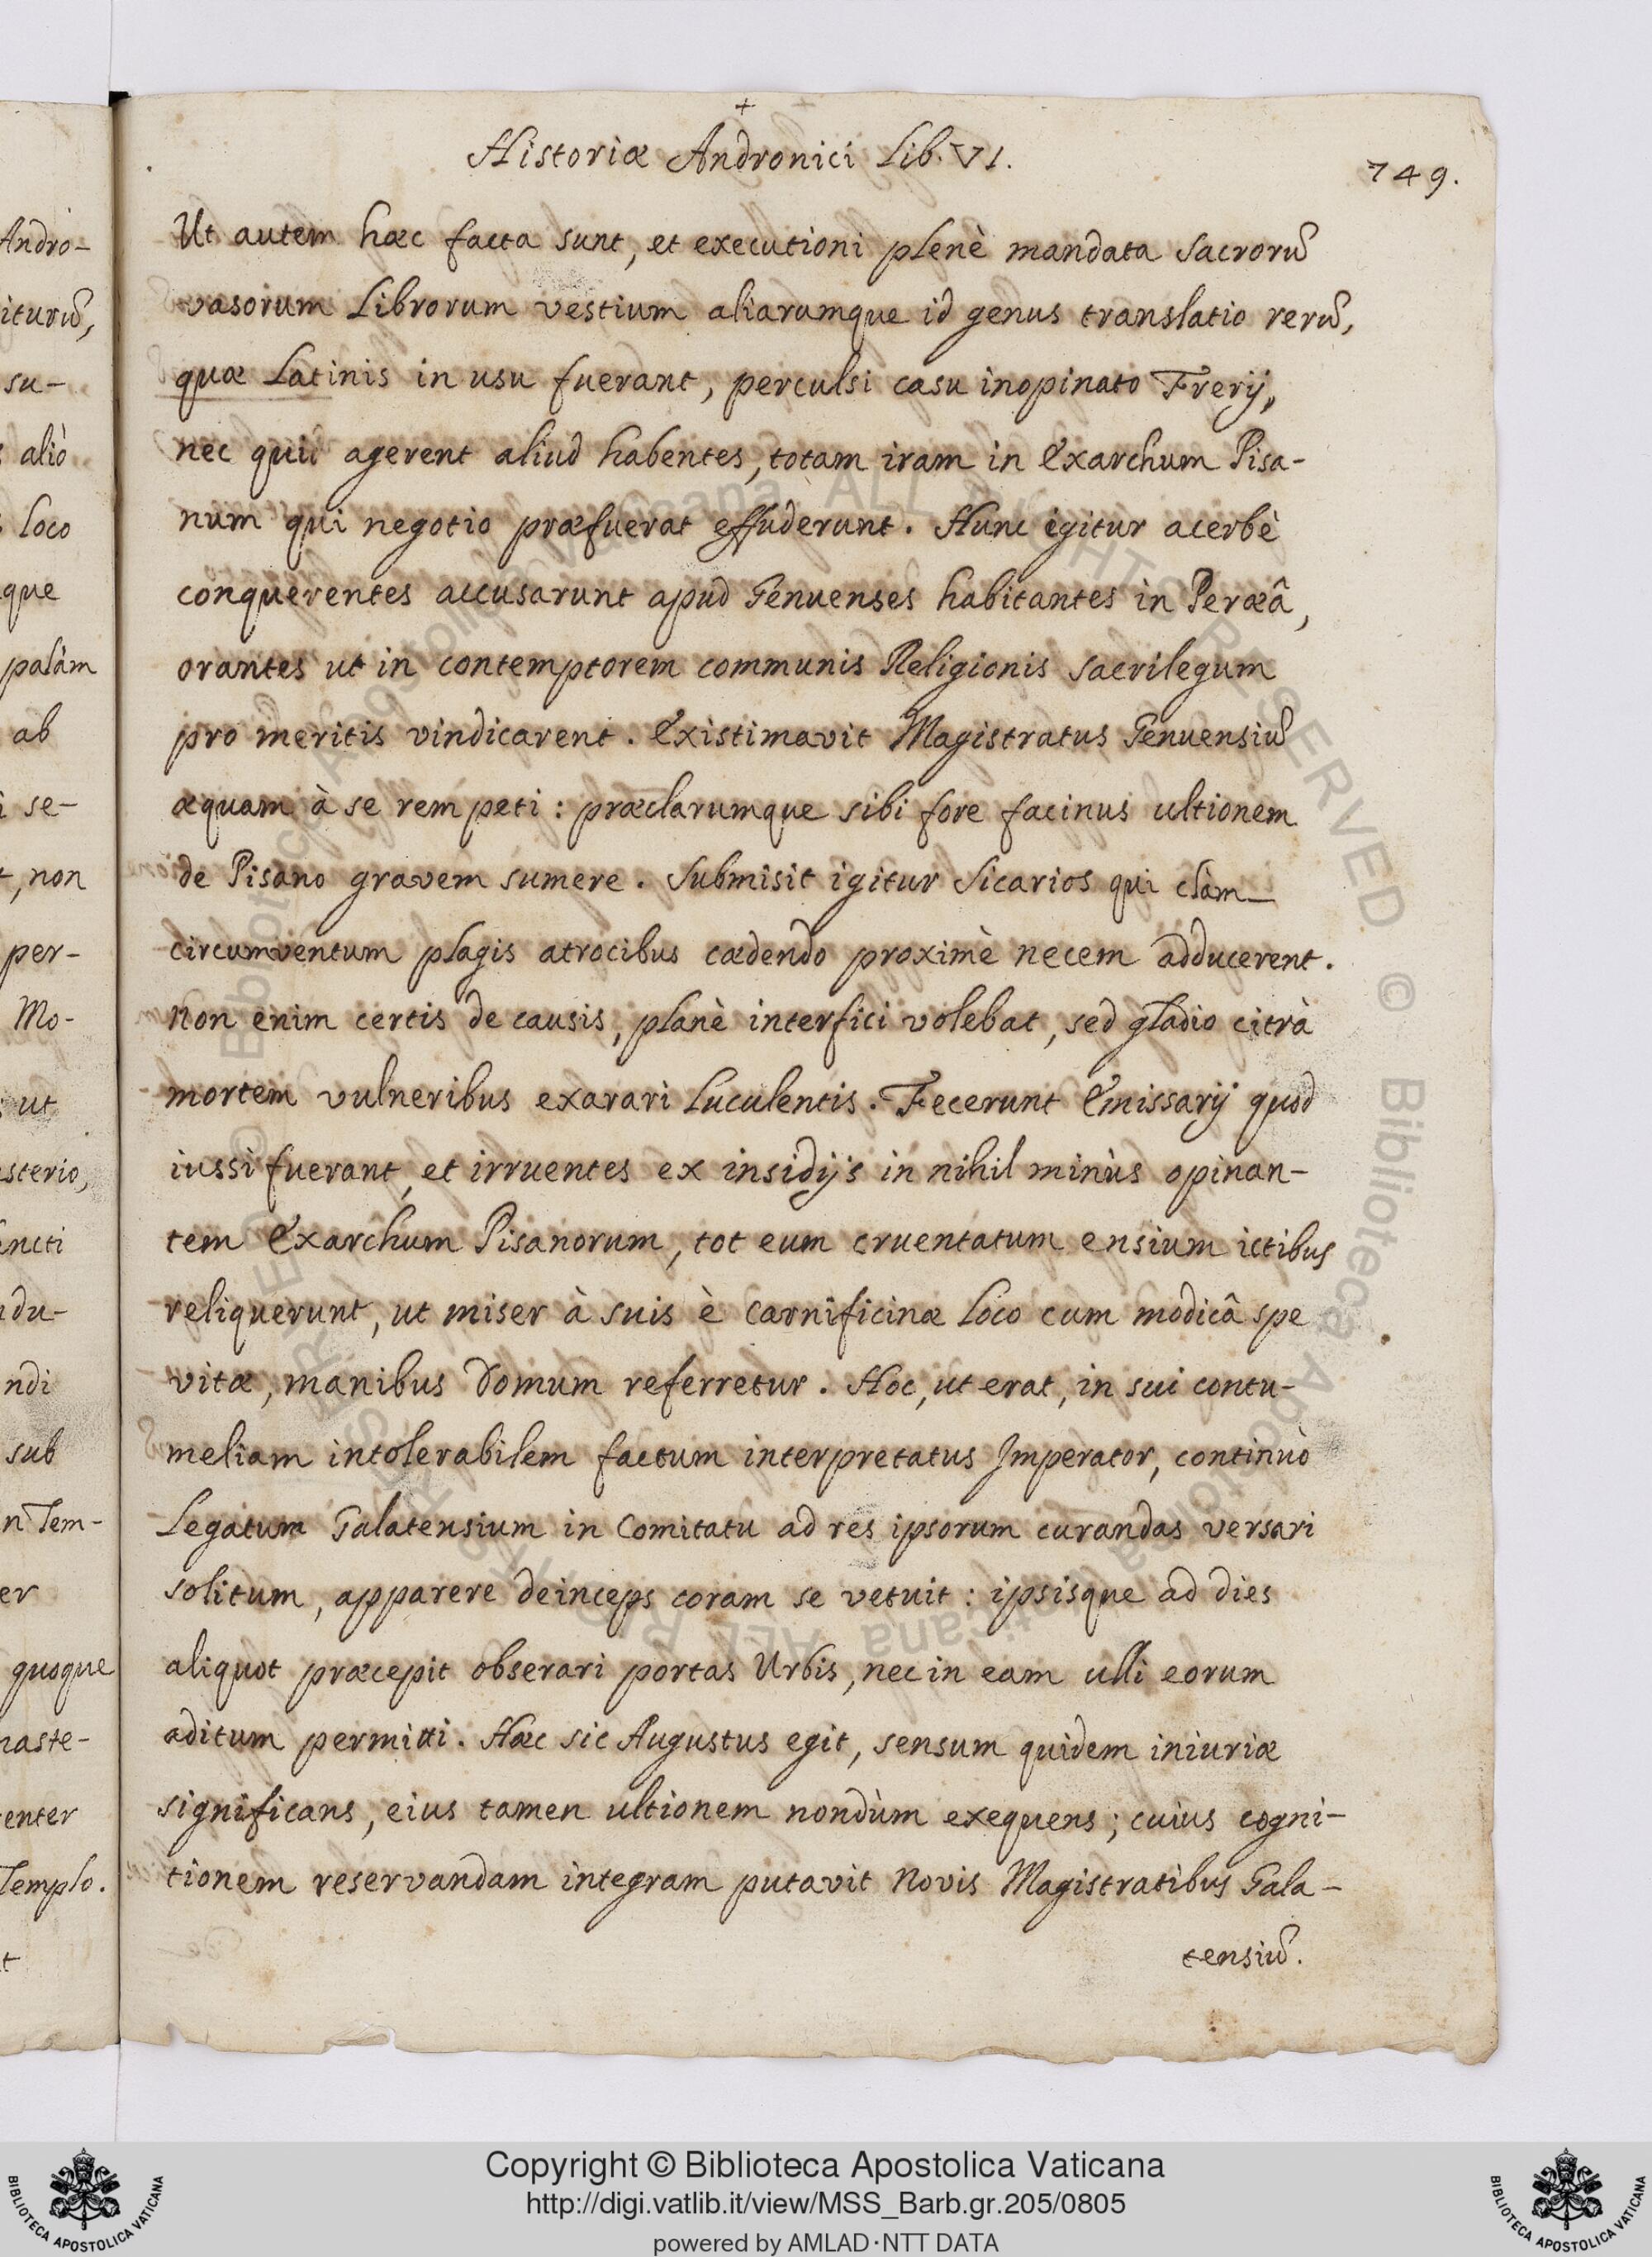 +
Historiæ Andronici Lib. VI.
749.
Ut autem hæc facta sunt, et executioni plenè mandata sacrorũ
vasorum Librorum vestium aliarumque id genus translatio rerũ,
quæ Latinis in usu fuerant, perculsi casu inopinato Frerij,
nec quid agerent aliud habentes, totam iram in Exarchum Pisa-
num qui negotio præfuerat effuderunt. Hunc igitur acerbè
conquerentes accusarunt apud Genuenses habitantes in Peræâ,
orantes ut in contemptorem communis Religionis sacrilegum
pro meritis vindicarent. Existimavit Magistratus Genuensiũ
æquam à se rem peti: præclarumque sibi fore facinus ultionem
de Pisano gravem sumere. Submisit igitur Sicarios qui clàm
circumventum plagis atrocibus cædendo proximè necem adducerent.
Non enim certis de causis, planè interfici volebat, sed gladio citrà
mortem vulneribus exarari luculentis. Fecerunt Emissarij quod
iussi fuerant, et irruentes ex insidijs in nihil minùs opinan-
tem Exarchum Pisanorum, tot eum cruentatum ensium ictibus
reliquerunt, ut miser à suis è carnificinæ loco cum modicâ spe
vitæ, manibus domum referretur. Hoc, ut erat, in sui contu-
meliam intolerabilem factum interpretatus Imperator, continuò
Legatum Galatensium in Comitatu ad res ipsorum curandas versari
solitum, apparere deinceps coram se vetuit: ipsisque ad dies
aliquot præcepit obserari portas Urbis, nec in eam ulli eorum
aditum permitti. Hæc sic Augustus egit, sensum quidem iniuriæ
significans, eius tamen ultionem nondùm exequens; cuius cogni-
tionem reservandam integram putavit Novis Magistratibus Gala-
tensiũ.
Andro-
iturũ,
su-
alio
loco
que
palàm
ab
se-
, non
per-
Mo-
ut
sterio,
ncti
du-
ndi
sub
n Tem-
er
quoque
naste-
enter
Templo.
t
Copyright © Biblioteca Apostolica Vaticana
http://digi.vatlib.it/view/MSS_Barb.gr.205/0805
powered by AMLAD·NTT DATA
BIBLIOTECA APOSTOLICA VATICANA
BIBLIOTECA APOSTOLICA VATICANA